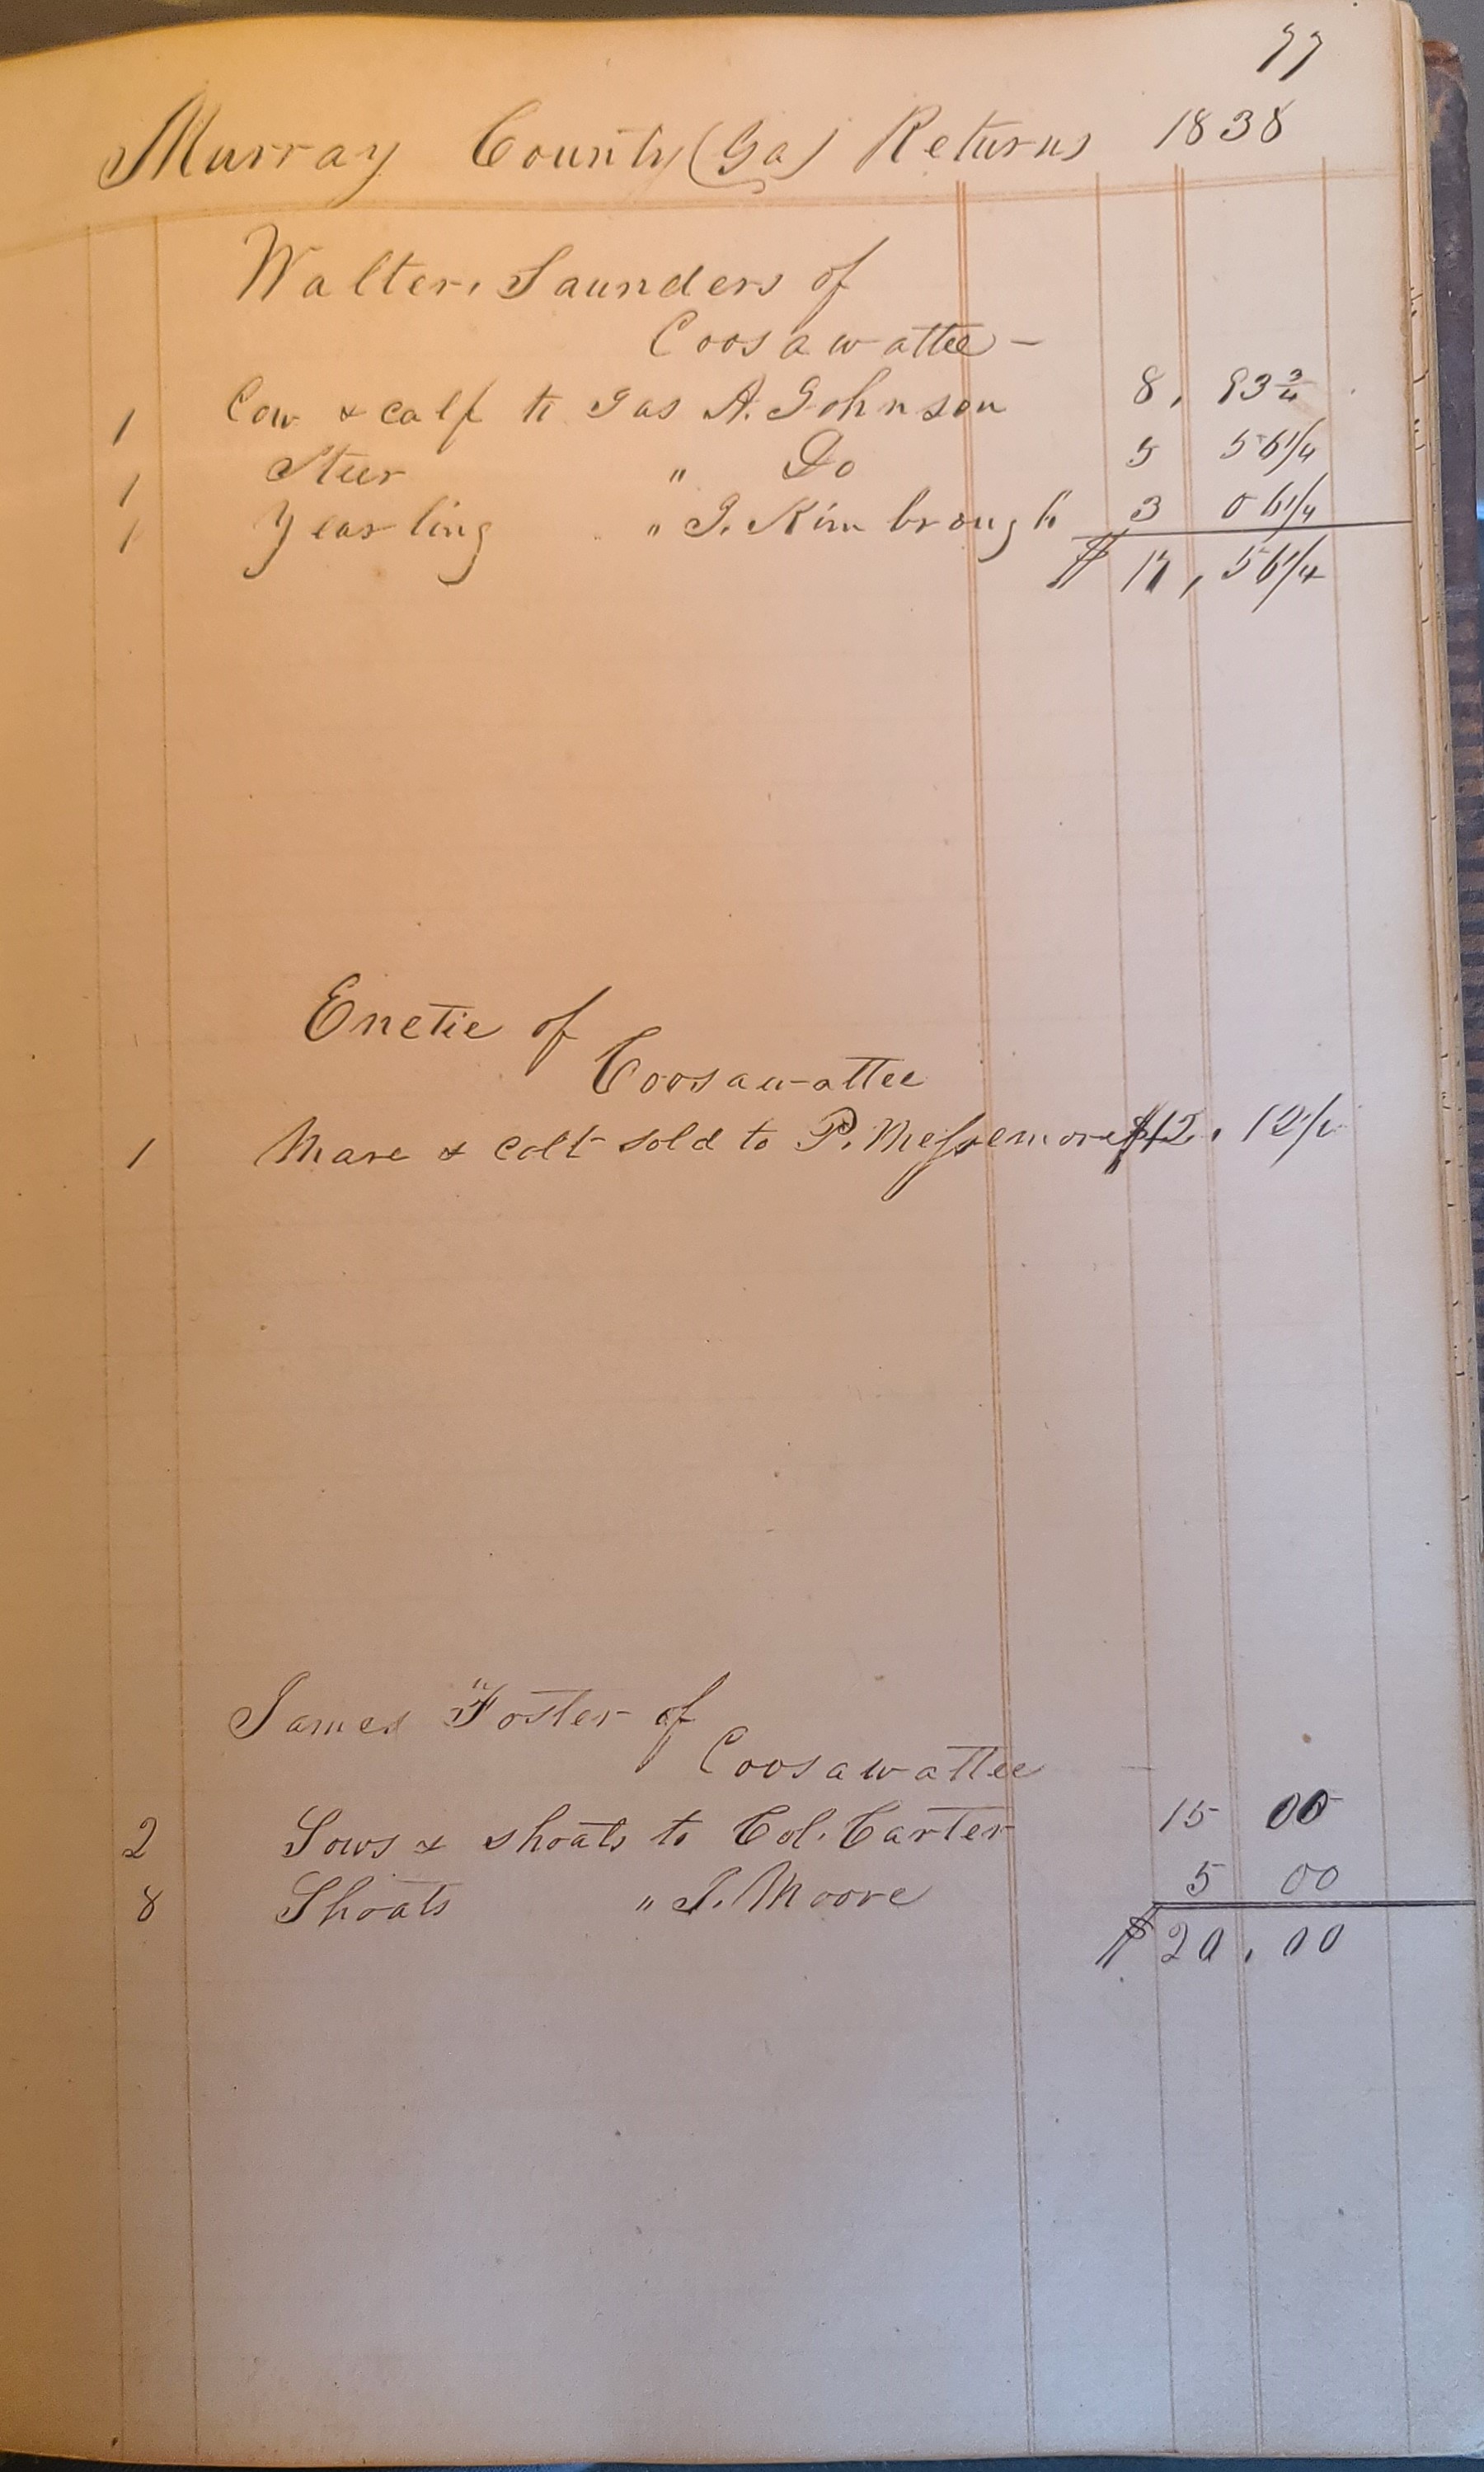 77
Murray County (Ga) Returns 1838
Walter. Saunders of
Coosawattee —
1 Cow & calf to Jas A. Johnson 8, 93 3/4
1 Steer " Do 5 56 1/4
1 Yearling " J. Kimbrough 3 06 1/4
$ 17, 56 1/4
Enetie of
Coosawattee
1 Mare & colt sold to P. Messemore $12. 12 1/2
James Foster of
Coosawattee
2 Sows & shoats to Col. Carter 15 00
8 Shoats " J. Moore 5 00
$ 20.00